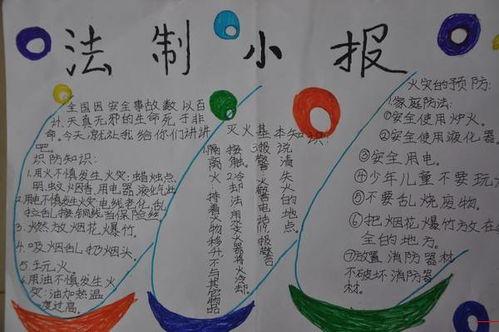 法制小报
全国因安全事故数以百
计.天真无邪的生命死于非
命。今天,就让我给你们讲讲
吧
识防知识:
1.用火不慎发生火灾:蜡烛点
明,蚊烟香,用电器,液化气灶
2.用电不慎发生火灾电线老化,乱
拉乱接,铜线当保险丝
3.燃放烟花爆竹.
4.吸烟乱扔烟头.
5.玩火
6.用油不慎发生火
灾:油加热温
度过高.
灭火基本知识:
1.隔离火:将着火物移开不与其它物品
接触
2.冷却法:用灭火器将火冷却.
3.报警:火警电
说清失火的地点
火灾的预防:
1.家庭防法:
①安全使用炉火.
②安全使用液化器.
③安全用电.
④少年儿童不要玩火
⑤不要乱烧废物.
⑥把烟花爆竹放在
全的地方.
⑦放置消防器材
不破坏消防器
材.